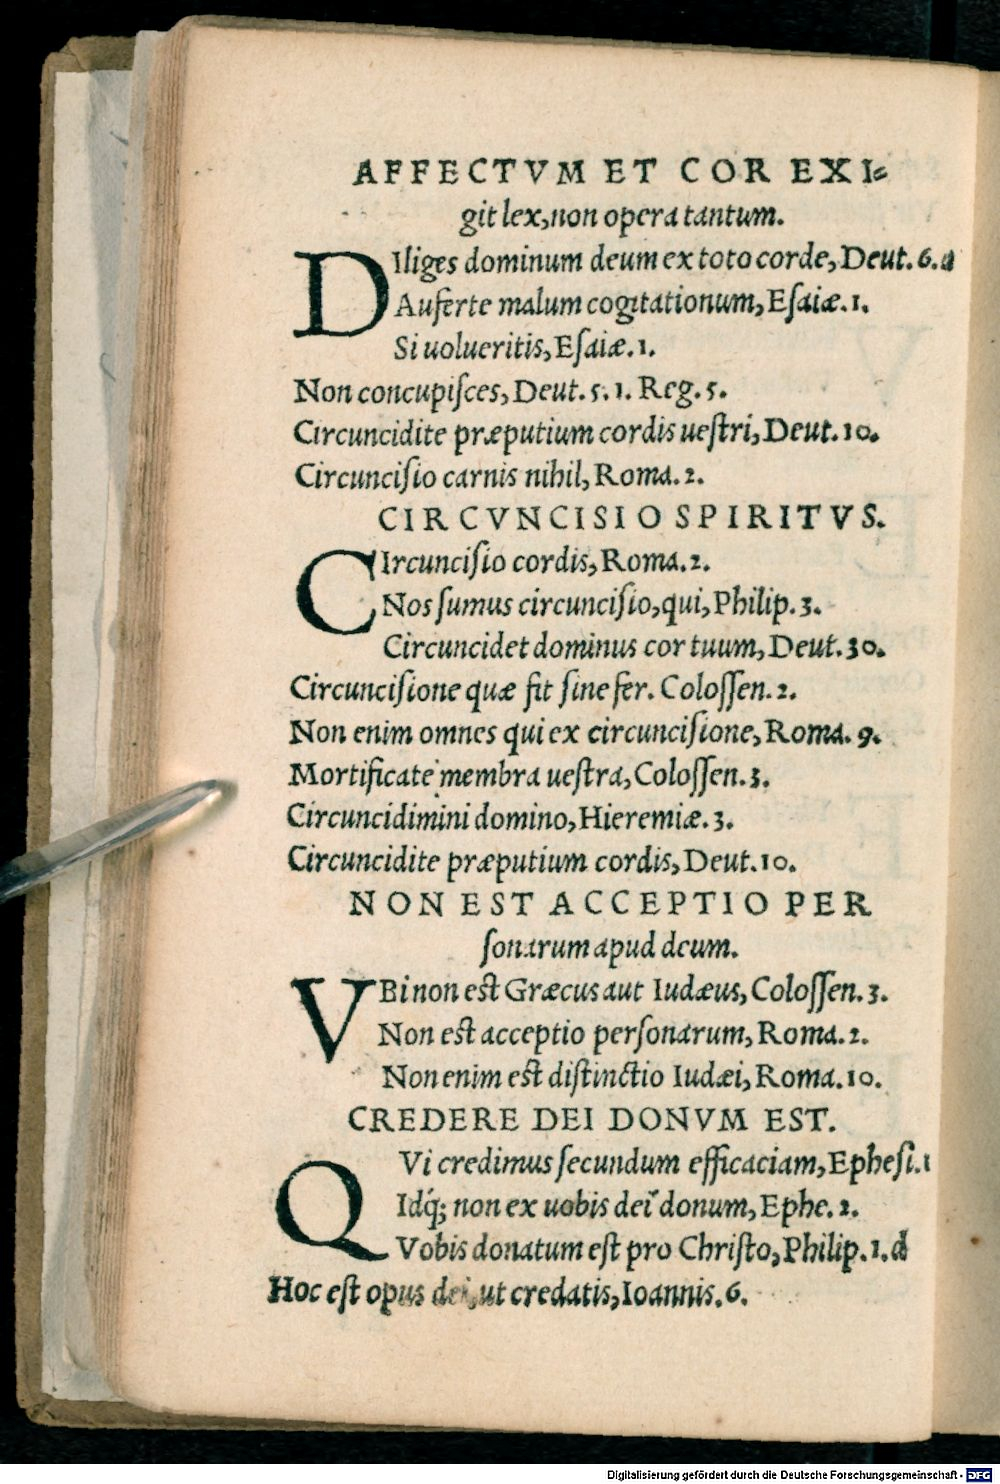 AFFECTVM ET COR EXI-
git lex, non opera tantum.
DIliges dominum deum ex toto corde, Deut. 6. d
Auferte malum cogitationum, Esaiæ. 1.
Si uolueritis, Esaiæ. 1.
Non concupisces, Deut. 5. 1. Reg. 5.
Circuncidite præputium cordis uestri, Deut. 10.
Circuncisio carnis nihil, Roma. 2.
CIRCVNCISIO SPIRITVS.
CIrcuncisio cordis, Roma. 2.
Nos sumus circuncisio, qui, Philip. 3.
Circuncidet dominus cor tuum, Deut. 30.
Circuncisione quæ fit sine fer. Colossen. 2.
Non enim omnes qui ex circuncisione, Roma. 9.
Mortificate membra uestra, Colossen. 3.
Circuncidimini domino, Hieremiæ. 3.
Circuncidite præputium cordis, Deut. 10.
NON EST ACCEPTIO PER
sonarum apud deum.
VBi non est Græcus aut Iudæus, Colossen. 3.
Non est acceptio personarum, Roma. 2.
Non enim est distinctio Iudæi, Roma. 10.
CREDERE DEI DONVM EST.
QVi credimus secundum efficaciam, Ephesi. 1
Idq́; non ex uobis dei donum, Ephe. 2.
Vobis donatum est pro Christo, Philip. 1. d
Hoc est opus dei, ut credatis, Ioannis. 6.
Digitalisierung gefördert durch die Deutsche Forschungsgemeinschaft - DFG